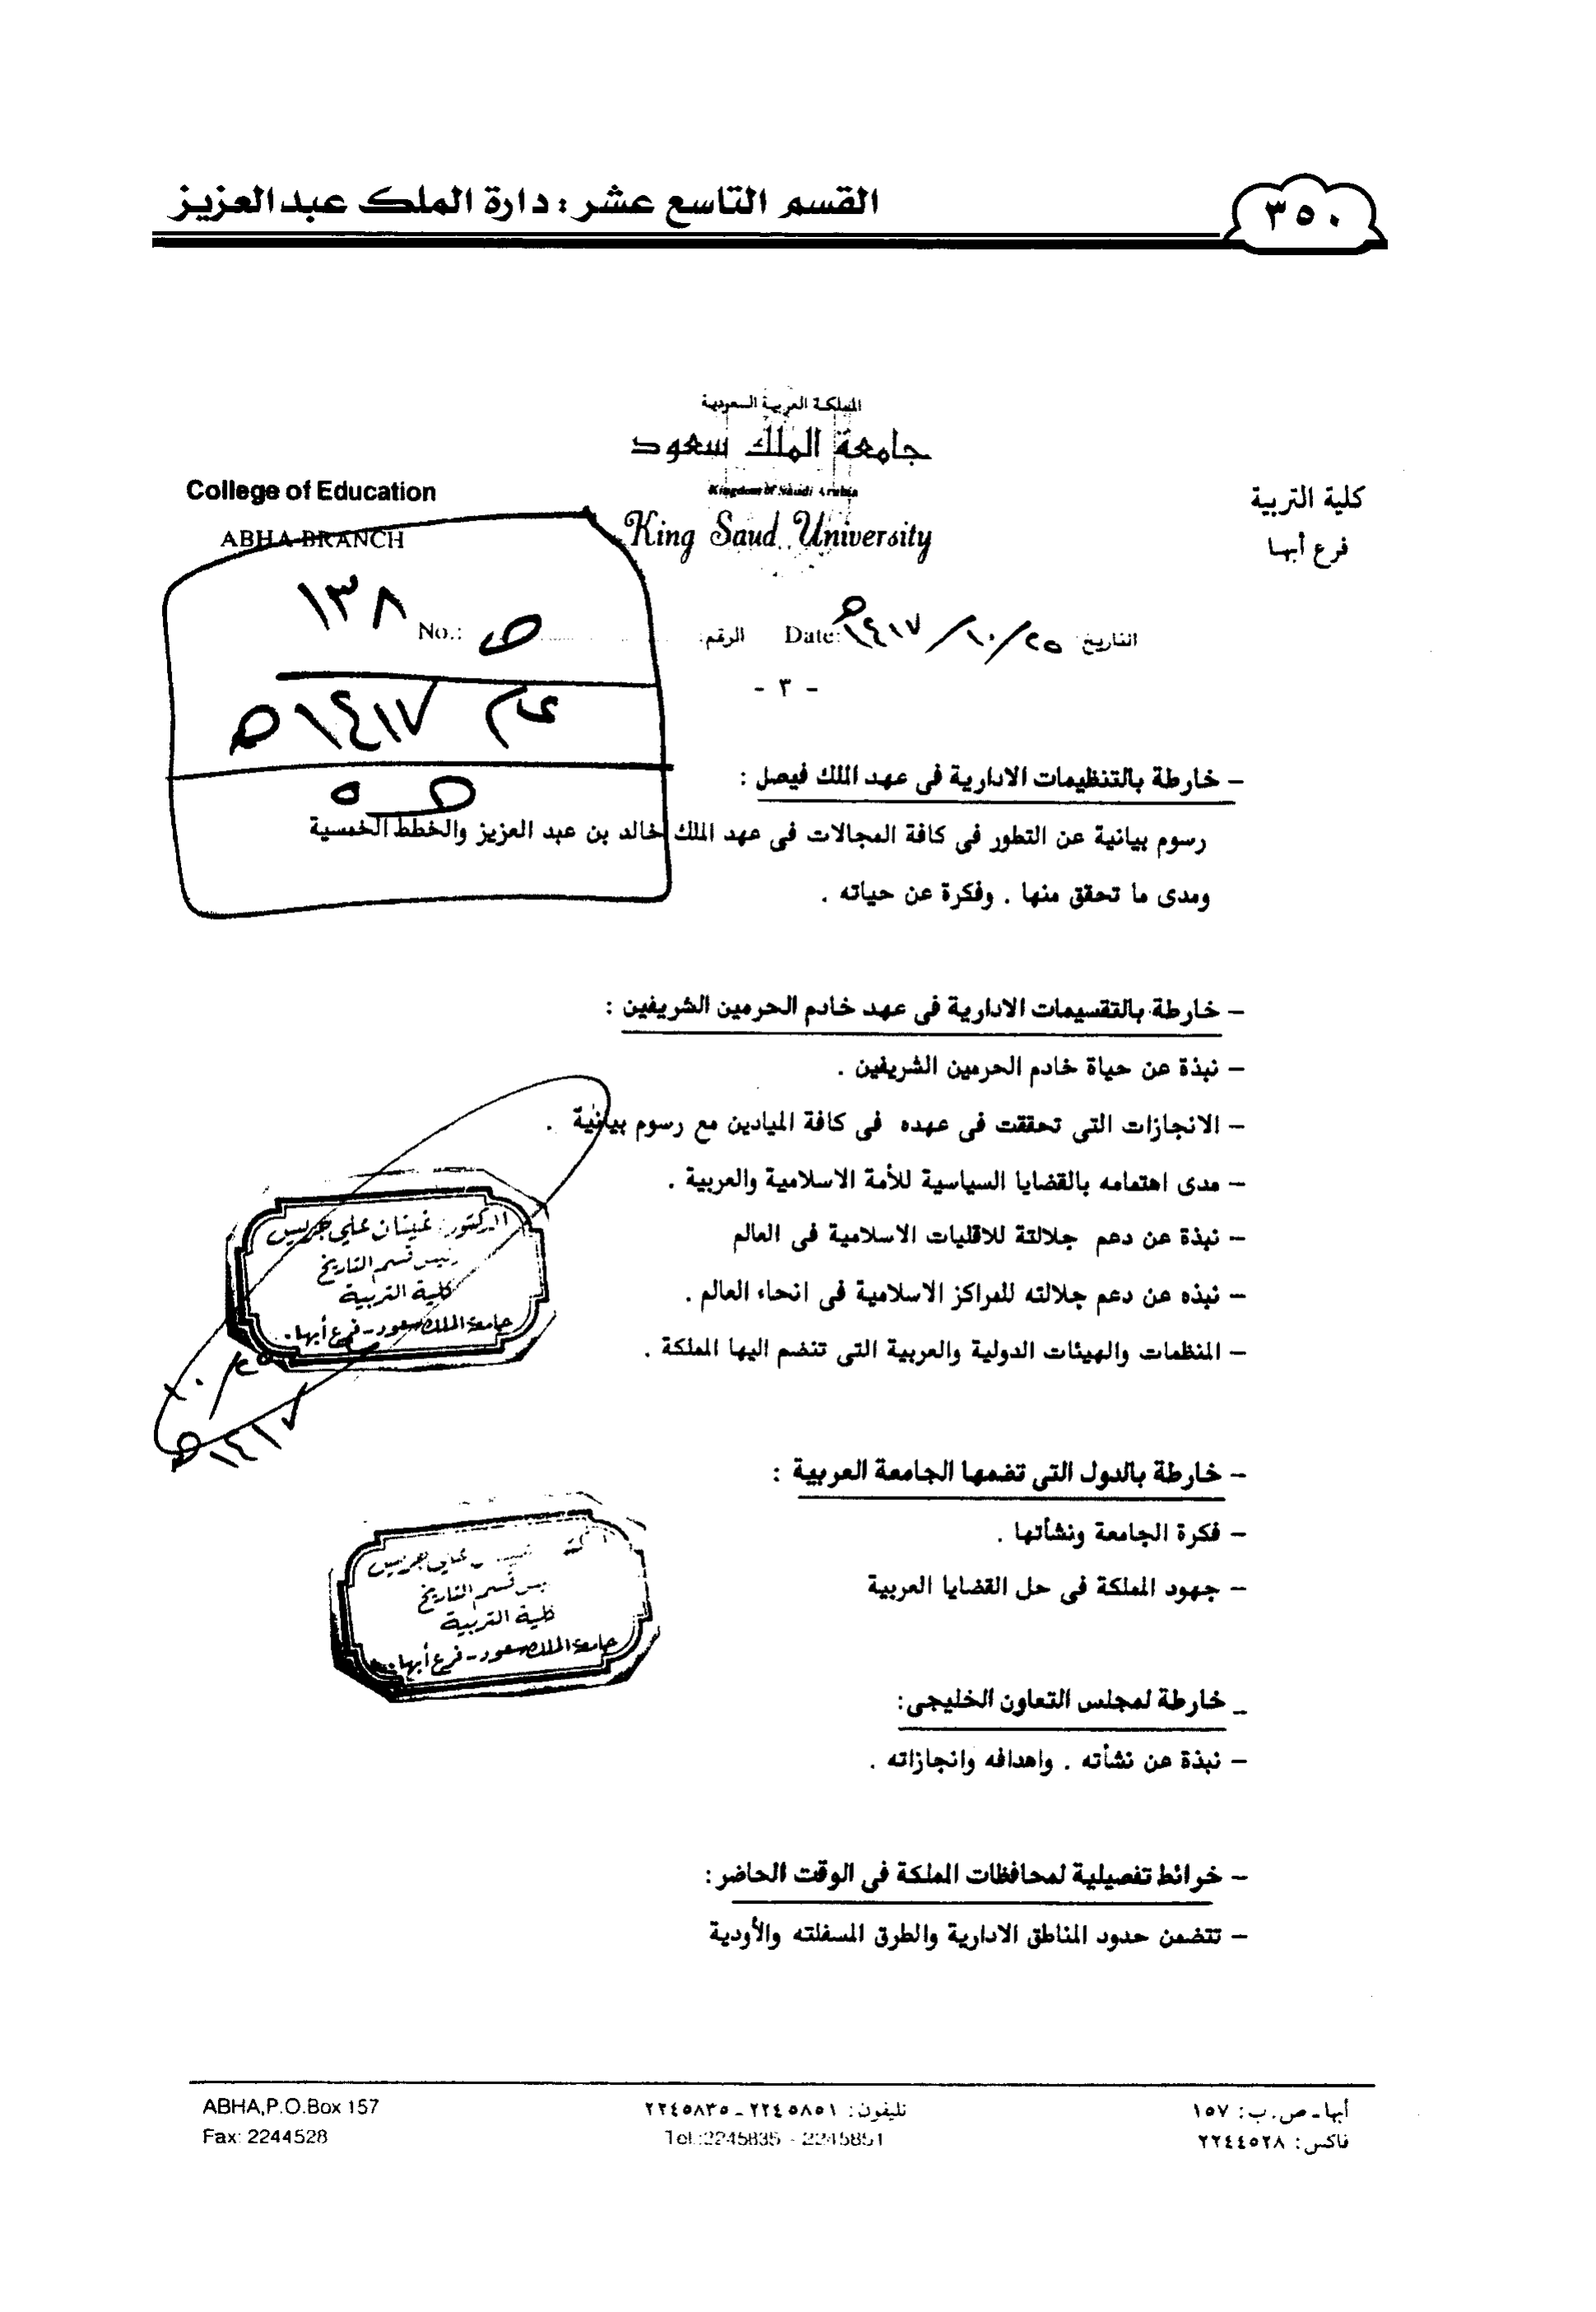 القسم التاسع عشر : دارة الملك عبدالعزيز
٣٥٠
المملكة العربية السعودية
جامعة الملك سعود
Kingdom of Saudi Arabia
King Saud University
College of Education
ABHA BRANCH
كلية التربية
فرع أبها
التاريخ: ٢٥/١٠/١٤١٧هـ Date: الرقم: No.:
ص ١٣٨
عام ١٤١٧هـ
ص ٥
- ٣ -
– خارطة بالتنظيمات الادارية فى عهد الملك فيصل :
رسوم بيانية عن التطور فى كافة المجالات فى عهد الملك خالد بن عبد العزيز والخطط الخمسية
ومدى ما تحقق منها . وفكرة عن حياته .
– خارطة بالتقسيمات الادارية فى عهد خادم الحرمين الشريفين :
– نبذة عن حياة خادم الحرمين الشريفين .
– الانجازات التى تحققت فى عهده فى كافة الميادين مع رسوم بيانية .
– مدى اهتمامه بالقضايا السياسية للأمة الاسلامية والعربية .
– نبذة عن دعم جلالتة للاقليات الاسلامية فى العالم
– نبذه عن دعم جلالته للمراكز الاسلامية فى انحاء العالم .
– المنظمات والهيئات الدولية والعربية التى تنضم اليها المملكة .
الدكتور : غيثان علي جريس
رئيس قسم التاريخ
كلية التربية
جامعة الملك سعود - فرع أبها .
٢٥/١٠
١٤١٧هـ
– خارطة بالدول التى تضمها الجامعة العربية :
– فكرة الجامعة ونشأتها .
– جهود المملكة فى حل القضايا العربية
علي جريس
قسم التاريخ
كلية التربية
جامعة الملك سعود - فرع أبها
– خارطة لمجلس التعاون الخليجى:
– نبذة عن نشأته . واهدافه وانجازاته .
– خرائط تفصيلية لمحافظات المملكة فى الوقت الحاضر:
– تتضمن حدود المناطق الادارية والطرق المسفلته والأودية
أبها ـ ص. ب: ١٥٧
فاكس: ٢٢٤٤٥٢٨
تليفون: ٢٢٤٥٨٥١ ـ ٢٢٤٥٨٣٥
Tel.:2245835 - 2245851
ABHA,P.O.Box 157
Fax: 2244528